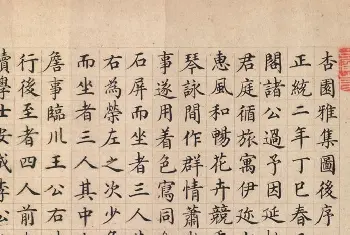 杏園雅集圖後序
正統二年丁巳春
閣諸公過予因延
君庭循旅寓伊迩
惠風和暢花卉競
琴詠間作群情蕭
事遂用着色寫同
石屏而坐者三人
右為榮左之次少
而坐者三人其中
詹事臨川王公右
行後至者四人前
讀學士安成李公